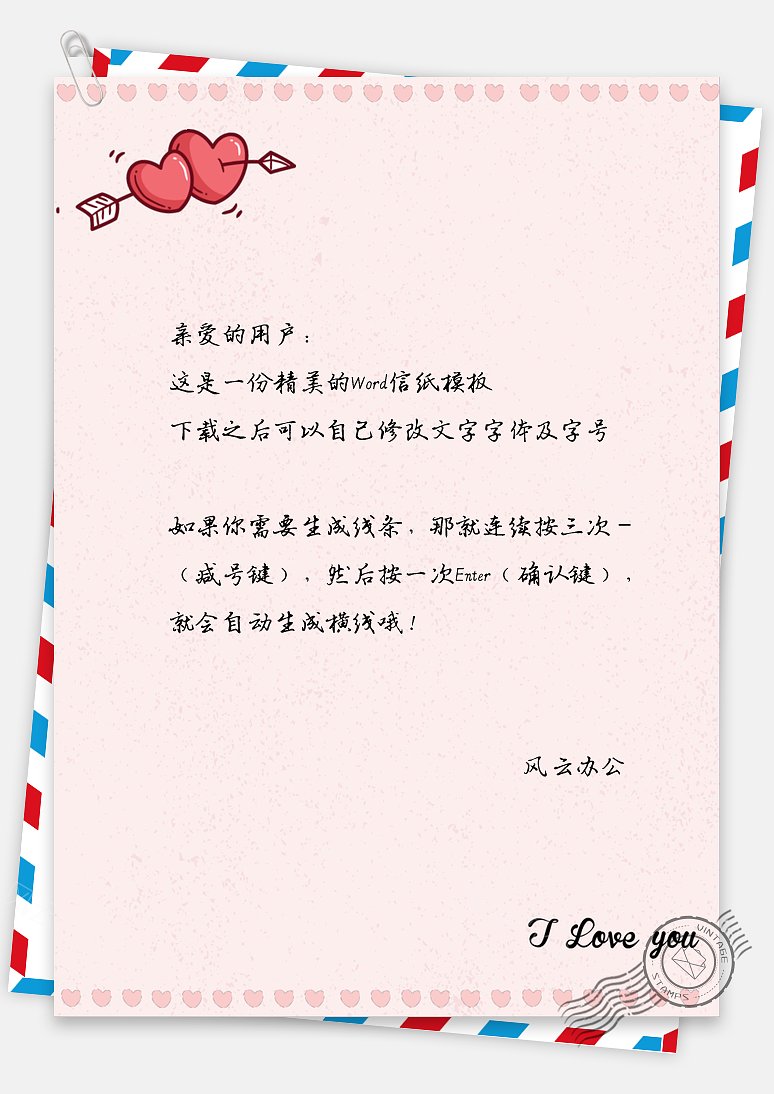 亲爱的用户：
这是一份精美的Word信纸模板
下载之后可以自己修改文字字体及字号
如果你需要生成线条，那就连续按三次－
（减号键），然后按一次Enter（确认键），
就会自动生成横线哦！
风云办公
I Love you
VINTAGE
STAMPS